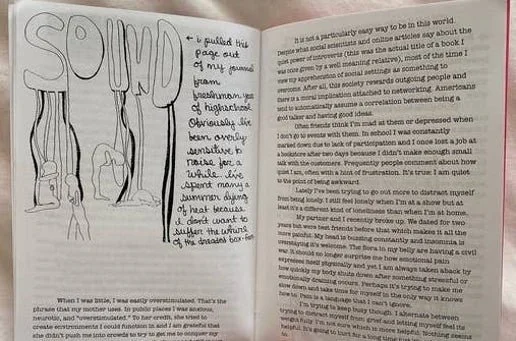 SOUND
← i pulled this
page out
of my journal
from
freshman year
of highschool.
Obviously i've
been overly
sensitive to
noise for a
while. i've
spent many a
summer dying
of heat because
i didn't want to
suffer the whire
of the dreaded box-fan.
When I was little, I was easily overstimulated. That's the
phrase that my mother uses. In public places I was anxious,
neurotic, and "overstimulated." To her credit, she tried to
create environments I could function in and I am grateful that
she didn't push me into crowds to try to get me to conquer my
It is not a particularly easy way to be in this world.
Despite what social scientists and online articles say about the
quiet power of introverts (this was the actual title of a book I
was once given by a well meaning relative), most of the time I
view my apprehension of social settings as something to
overcome. After all, this society rewards outgoing people and
there is a moral implication attached to networking. Americans
tend to automatically assume a correlation between being a
good talker and having good ideas.
Often friends think I'm mad at them or depressed when
I don't go to events with them. In school I was constantly
marked down due to lack of participation and I once lost a job at
a bookstore after two days because I didn't make enough small
talk with the customers. Frequently people comment about how
quiet I am, often with a hint of frustration. It's true: I am quiet
to the point of being awkward.
Lately I've been trying to go out more to distract myself
from being lonely. I still feel lonely when I'm at a show but at
least it's a different kind of loneliness than when I'm at home.
My partner and I recently broke up. We dated for two
years but were best friends before that which makes it all the
more painful. My head is buzzing constantly and insomnia is
overstaying it's welcome. The flora in my belly are having a civil
war. It should no longer surprise me how emotional pain
expresses itself physically and yet I am always taken aback by
how quickly my body shuts down after something stressful or
emotionally draining occurs. Perhaps it's trying to make me
slow down and take time for myself in the only way it knows
how to. Pain is a language that I can't ignore.
I'm trying to keep busy though. I alternate between
trying to distract myself from grief and letting myself feel its
weight fully. I'm not sure which is more helpful. Nothing seems
helpful. It's going to hurt for a long time